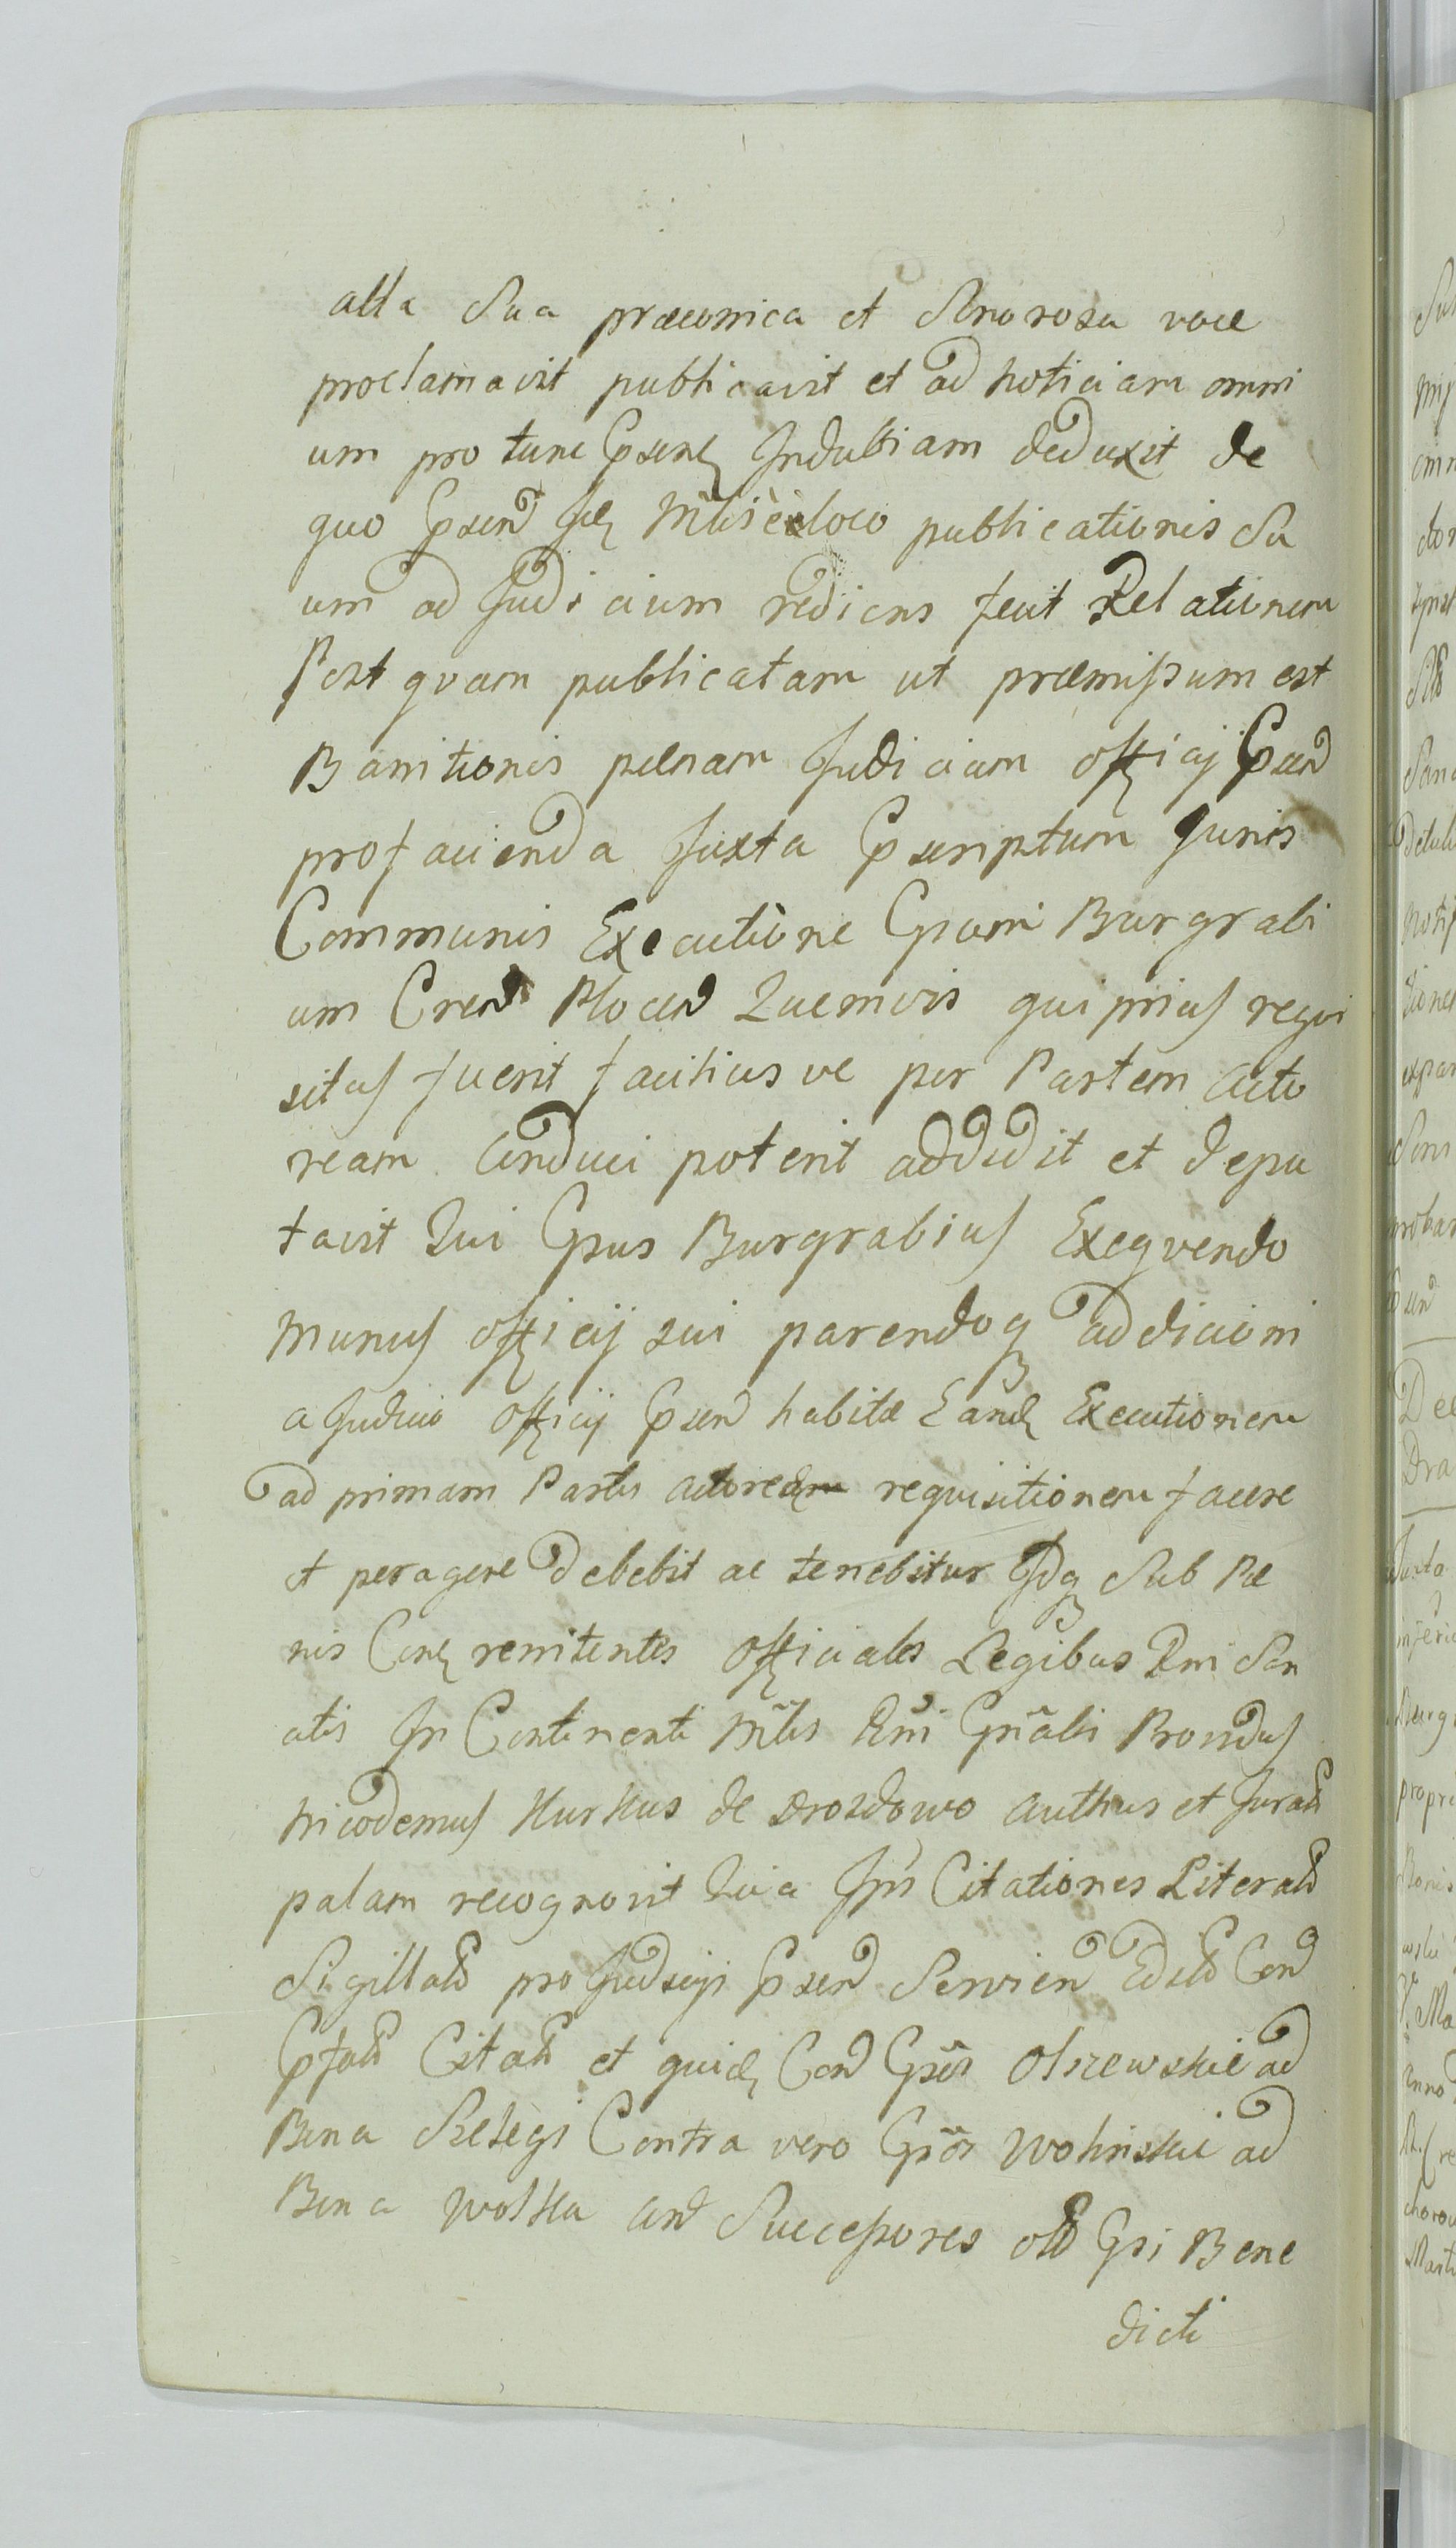 alta Sua præconica et Sonorosa voce
proclamavit publicavit et ad noticiam omni
um pro tunc Ꝓsenꝫ Indubiam deduxit de
quo Ꝓsen Idꝫ Mlis è loco publicationis Su
um ad Judicium rediens fecit Relationem
Post qvam publicatam ut præmissum est
Banitionis pænam Judicium officij Ꝓsen
pro facienda Juxta Ꝓscriptum Juris
Communis Executione Gsum Burgrabi
um Cren Plocen Quemvis qui prius requi
situs fuerit faciliusve per Partem Acto
ream Conduci poterit addidit et depu
tavit Qui Gsus Burgrabius Exeqvendo
Munus officij sui parendoqꝫ addicioni
a Judicio officij Ꝓsen habitæ Eandꝫ Executionem
ad primam Partis Actoreæ requisitionem facere
et peragere debebit ac tenebitur Idqꝫ Sub Pæ
nis Conꝫ renitentes Officiales Legibus Rni San
citis In Continenti Mlis Rni Gnalis Provdus
Nicodemus Kurkus de Drozdowo Authus et Jurat
palam recognovit Quia Ipse Citationes Literales
Sigillat pro Judicijs Ꝓsen Servien Edit Con
Ꝓfat Citat et quidꝫ Con Gsos Olszewskie ad
Bona Szelegi Contra vero Gsos Wolinskie ad
Bona Wolka Con Successores olim Gsi Bene
dicti